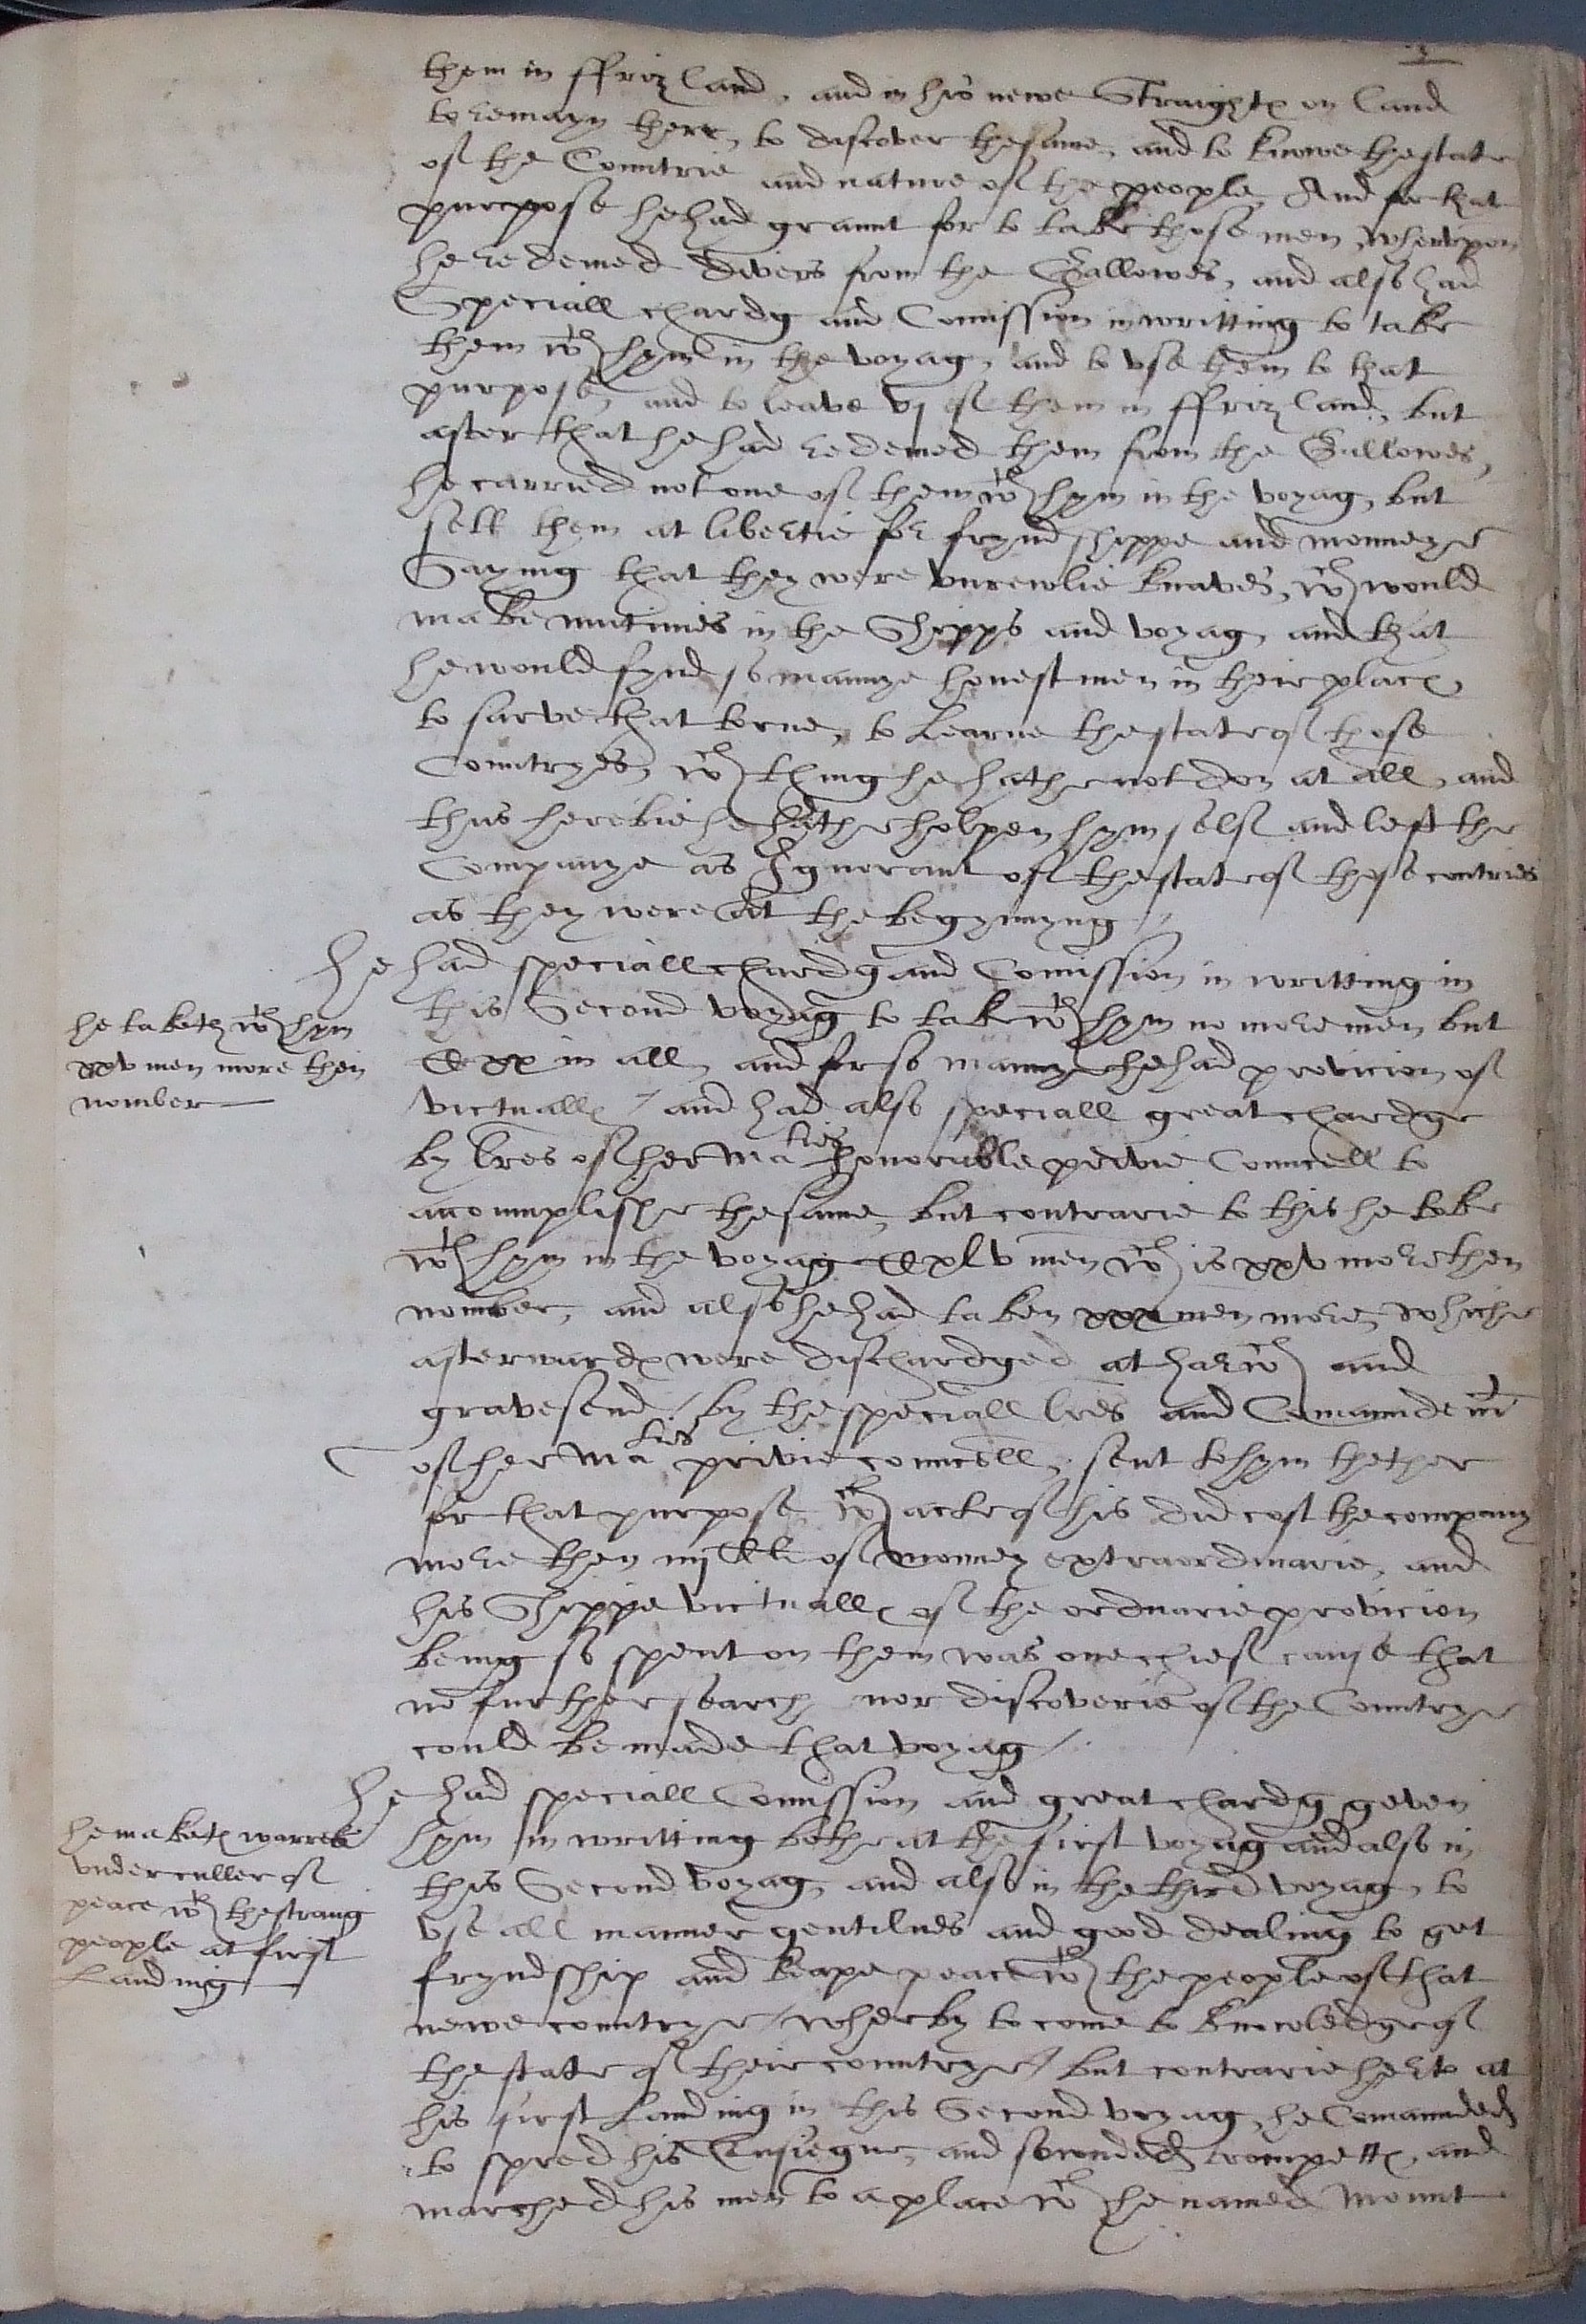 3
them in ffrizland, and in his newe Straightes on land
to remayn there, to discover the same, and to knowe the state
of the Countrie and nature of the people And for that
purpose he had graunt for to take those men, wherupon
he redemed divers from the Gallowes, and also had
Speciall chardg and Comission in writting to take
them wth hym in the voyag, and to vse them to that
purpose, and to leave vj of them in ffrizland, but
after that he had redemed them from the Gallowes,
he carried not one of them wth hym in the voyag, but
sett them at libertie for fryndshippe and monneye
Saying that they were vnrewlie knaves, wch would
make mutinies in the Shipps and voyag, and that
he would fynd so mannye honest men in their place,
to sarve that torne, to Learne the state of those
Countryes, wch thing he hathe not don at all, and
thus herebie he hathe holpen hym self and left the
Companye as Ignorant of the state of these contries
as they were at the begynnyng /
He had speciall chardg and Comission in writting in
this Second voyag to take wth hym no more men but
Cxx in all, and for so mannye he had provicion of
victualls / and had also speciall great chardge
by lres of her Maties honorable privie Councell to
accomplishe the same, but contrarie to this he toke
wth hym in the voyag Cxlv men wch is xxv more then
nomber, and also he had taken xxx men more, whiche
afterwardes were dischardged at harwch and
gravesend / by the speciall lres and Comaundemt
of her Maties privie councell, sent to hym thether
for that purpose, wch acte of his did cost the company
more then iiij C li of monney extraordinarie, and
his Shippe victualls of the ordnarie provicion
being so spent on them was one chief cause that
no further search nor discoverie of the Countrye
could be made that voyag /.
He had speciall Comission and great chardg geven
hym in writting bothe at the first voyag and also in
this Second voyag, and also in the third voyag, to
vse all manner gentilnes and good dealing to get
fryndship and keape peace wth the people of that
newe countrye / wherby to come to knowledge of
the state of their countrye / but contrarie herto at
his first Landing in this Second voyag, he Comaunded
to spred his Ensiegne, and sownded trompettes, and
marched his men to a place wch he named Mount
he taketh wth hym
xxv men more then
nomber
he maketh warres
vnder culler of
peace wth the strang
people at first
Landing